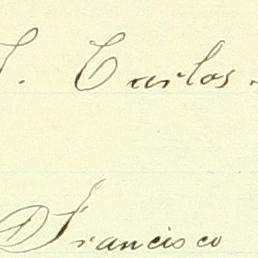 Carlos.
Francisco